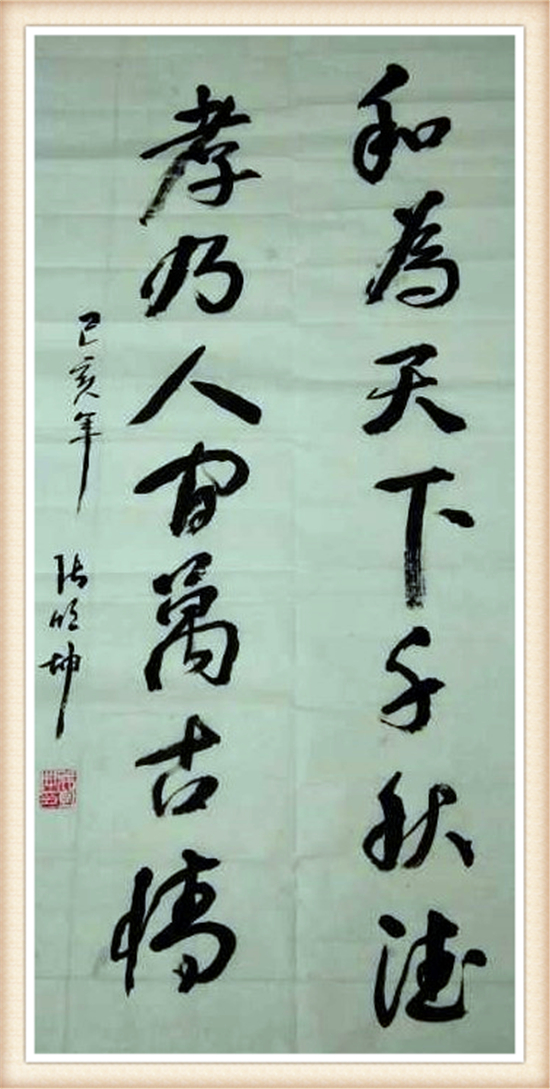 和為天下千秋德
孝乃人间萬古情
己亥年 张明坤